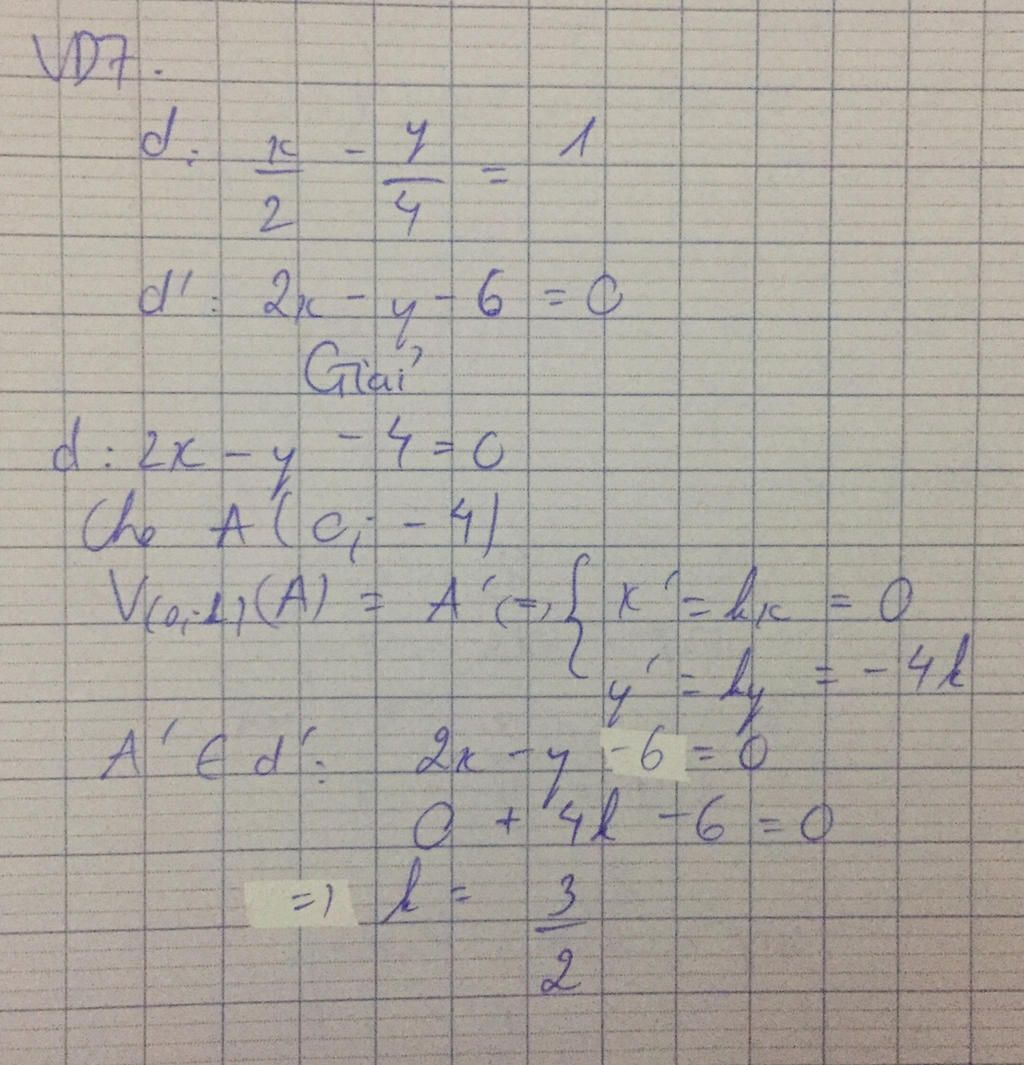 VD7.
d: x/2 - y/4 = 1
d': 2x - y - 6 = 0
Giải
d: 2x - y - 4 = 0
Cho A(0; -4)
V(0;k)(A) = A' <=> { x' = kx = 0
y' = ky = -4k
A' ∈ d': 2x - y - 6 = 0
0 + 4k - 6 = 0
=> k = 3/2